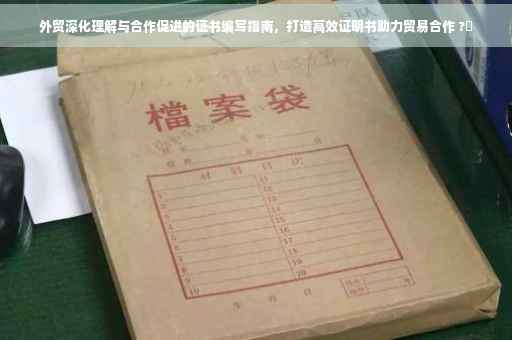 外贸深化理解与合作促进的证书编写指南，打造高效证明书助力贸易合作 ?
檔案袋
材料目次
1 11
2 12
3 13
4 14
5 15
6 16
7 17
8 18
9 19
10 20
年 月 日